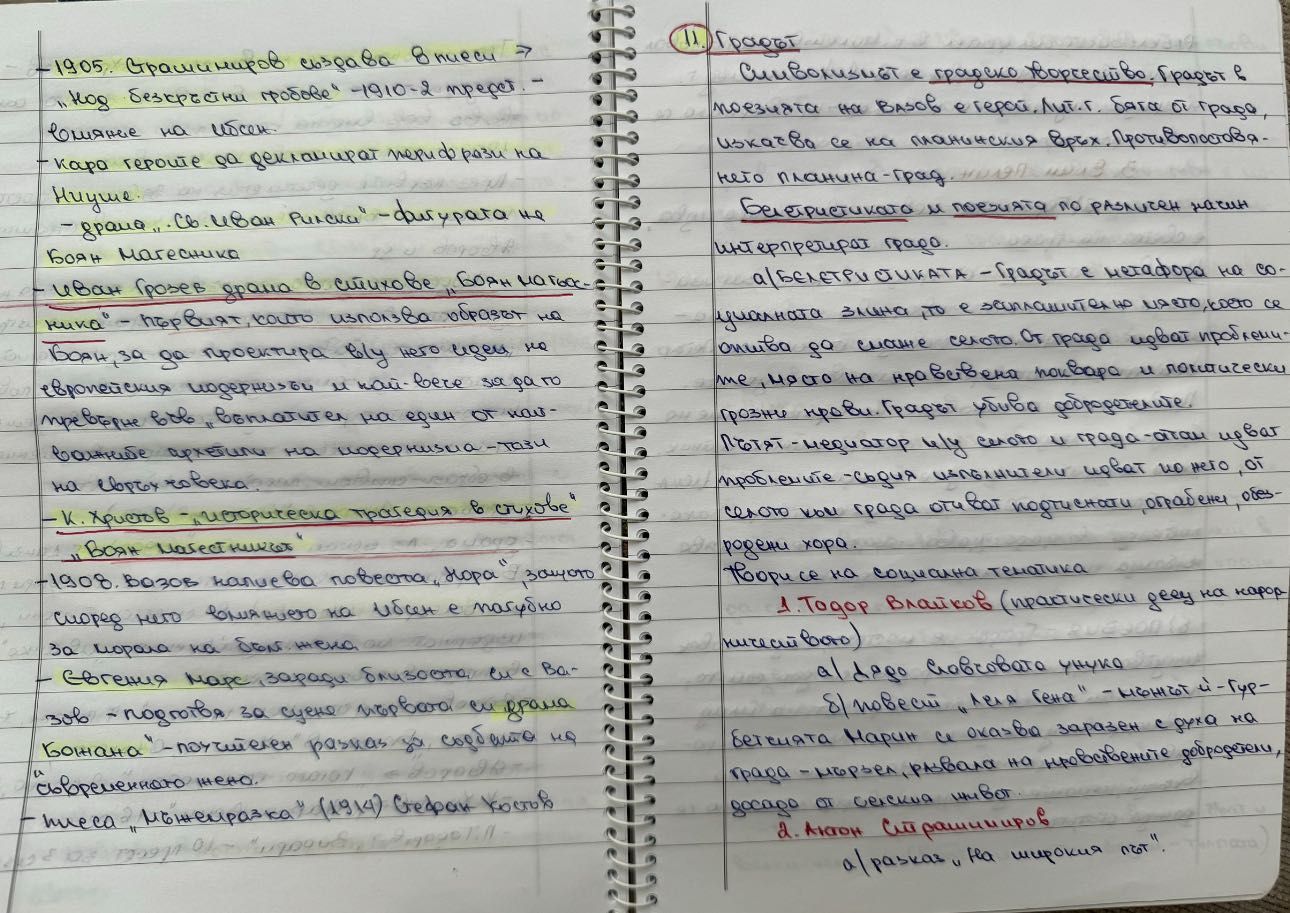 - 1905. Страшимиров създава 8 пиеси →
„Над безкръстни гробове" - 1910-2 предст. -
влияние на Ибсен.
- кара героите да декламират перифрази на
Ницше.
- драма „Св. Иван Рилски" - фигурата на
Боян Магесника
- Иван Грозев драма в стихове „Боян магьос-
ника" - първият, който използва образът на
Боян, за да проектира в/у него идеи на
европейския модернизъм и най-вече за да го
превърне във „въплатител на един от най-
важните архетипи на модернизма - този
на свръхчовека.
- К. Христов - „историческа трагедия в стихове"
„Боян магестникът"
- 1908. Вазов написва повестта „Нора", защото
според него влиянието на Ибсен е пагубно
за морала на бълг. жена
- Евгения Марс, заради близостта си с Ва-
зов - подготвя за сцена първата си драма
„Божана" - поучителен разказ за съдбата на
съвременната жена.
- пиеса „Мъжемразка" (1914) Стефан Костов
11. Градът
Символизмът е градско творчество. Градът в
поезията на Вазов е герой. Лит. г. бяга от града,
изкачва се на планинския връх. Противопоставя-
нето планина-град.
Белетристиката и поезията по различен начин
интерпретират града.
а/ БЕЛЕТРИСТИКАТА - Градът е метафора на со-
циалната злина, то е заплашително място, което се
опитва да смаже селото. От града идват проблеми-
те, място на нравствена поквара и политически
грозни нрави. Градът убива добродетелите.
Пътят - медиатор м/у селото и града - оттам идват
проблемите - съдия изпълнители идват по него, от
селото към града отиват подтиснати, ограбени, обез-
родени хора.
Твори се на социална тематика
1. Тодор Влайков (практически деец на народ-
ничеството)
а/ Дядо Славчовата унука
б/ повест „Леля Гена" - мъжът ѝ - Гур-
бетчията Марин се оказва заразен с духа на
града - мързел, развала на нравствените добродетели,
досада от селския живот.
2. Антон Страшимиров
а/ разказ „На широкия път".